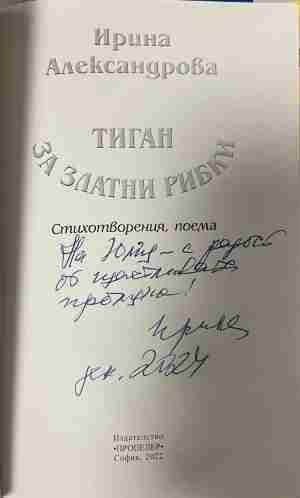 Ирина
Александрова
ТИГАН
ЗА ЗЛАТНИ РИБКИ
Стихотворения, поема
На – с радост
от щастливата
Ирина
дек. 2024
Издателство
•ПРОПЕЛЕР•
София, 2022